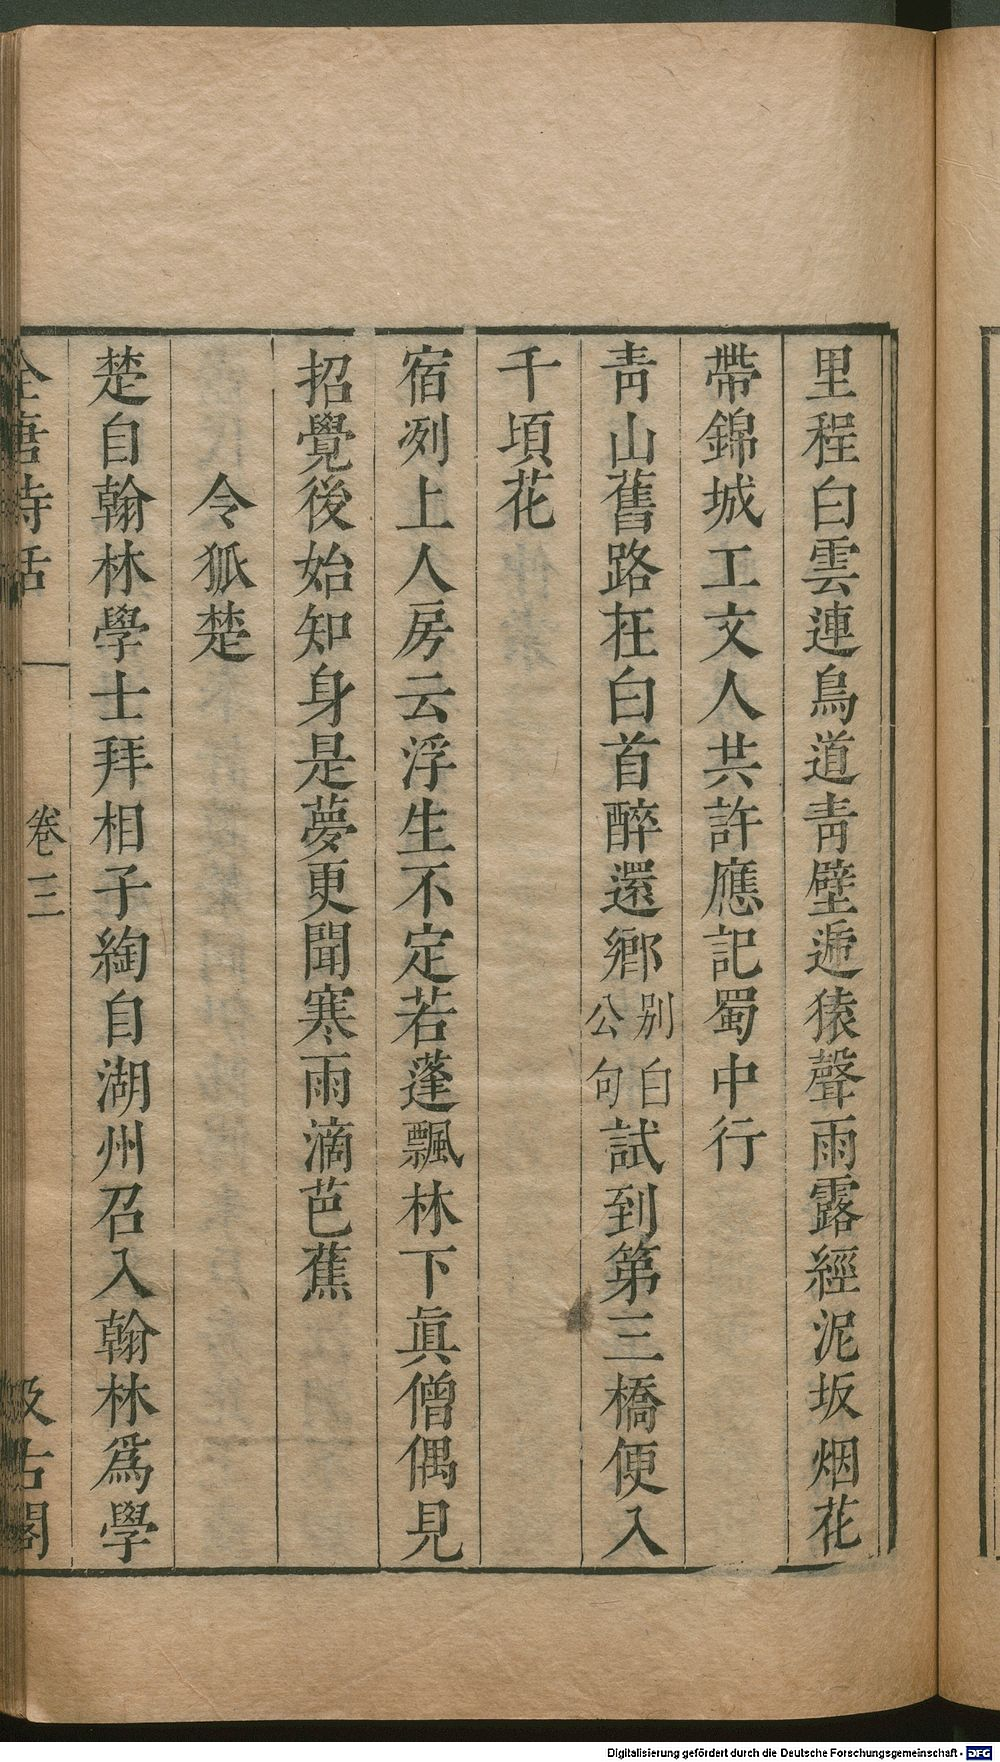 里程白雲連鳥道靑壁遞猿聲雨露經泥坂烟花
帶錦城工文人共許應記蜀中行
靑山舊路在白首醉還鄉別白公句試到第三橋便入
千頃花
宿冽上人房云浮生不定若蓬飄林下眞僧偶見
招覺後始知身是夢更聞寒雨滴芭蕉
令狐楚
楚自翰林學士拜相子綯自湖州召入翰林爲學
全唐詩話
卷三
汲古閣
Digitalisierung gefördert durch die Deutsche Forschungsgemeinschaft - DFG